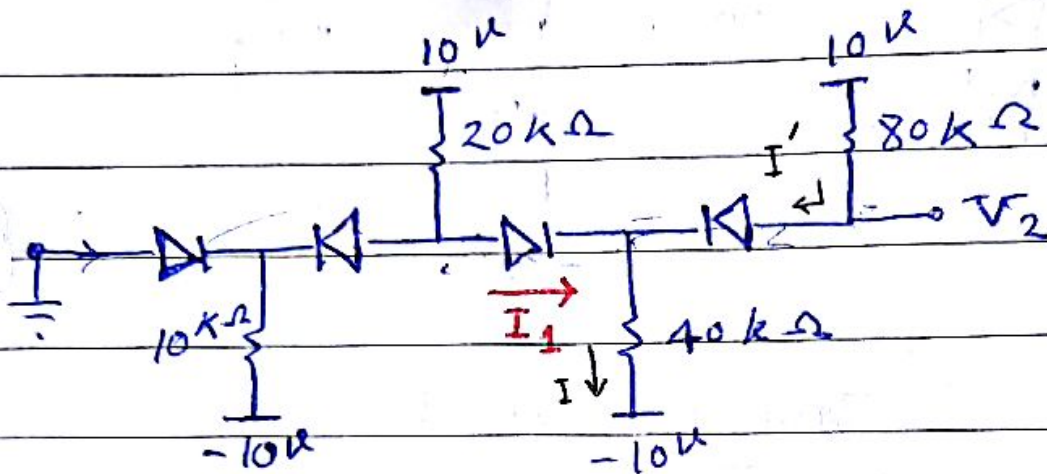 10 V
10 V
20 kΩ
80 kΩ
I'
V2
10 KΩ
I1
40 kΩ
I
-10 V
-10 V